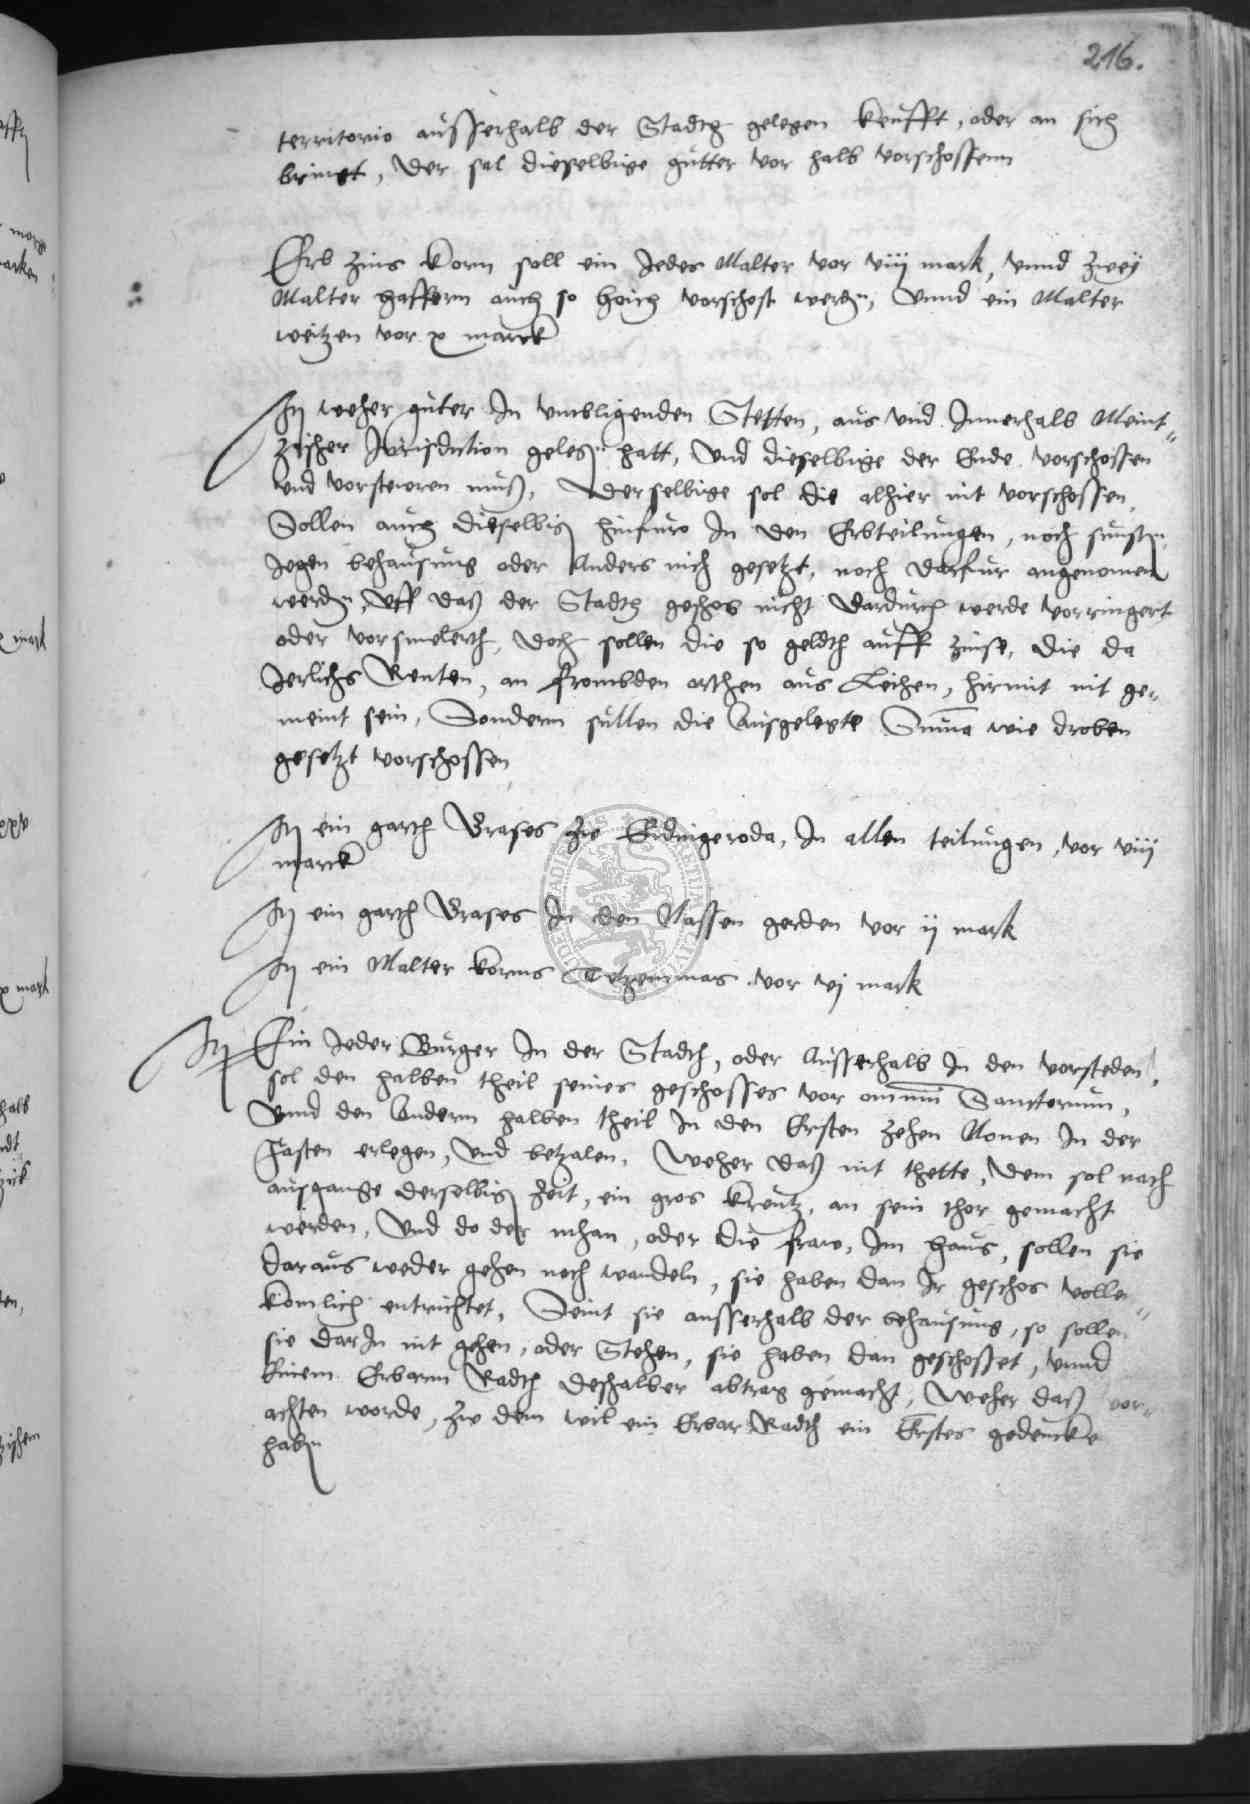 216.
territorio ausserhalb der Stadth gelegen keufft, oder an sich
bringt, der sal dieselbige gutter vor halb vorschossenn
Erb zins korn soll ein Jedes Malter vor viij mark, vnnd zweÿ
Malter haffern auch so hoich vorschost werden, Vnnd ein Malter
weitzen vor x marck
Jt weher guter In vmbligenden Stetten, aus vnd Innerhalb Meint"
zischer Jurisdiction gelegen hatt, Vnd dieselbige der Ende vorschossen
vnd vorstewren muß, Derselbige sol die alhier nit vorschossen,
Sollen auch dieselbig hinfuro In den Erbteilungen, noch sunsten
Jegen behausung oder Anders nich gesetzt, noch darfur angenomen
werden, Vff daß der Stadth geschos nicht dardurch werde vorringert
oder vorsmelerth, Doch sollen die so geldth auff zinse, die da
Jerlichs Renten, an frombden orthen aus Leihen, hirmit nit ge"
meint sein, Sondern sullen die Ausgelegte Suma wie droben
gesetzt vorschossen
Jt ein garth Grases zw Erdingeroda, In allen teilungen, vor viij
marck
Jt ein garth Grases In den Nassen gerden vor ij mark
Jt ein Malter korns vor vj mark
Jt Ein Jeder Burger In der Stadth, oder Ausserhalb In den vorsteden,
sol den halben theil seines geschosses vor omnium Sanctorum,
Vnnd den Andern halben theil In den Ersten zehen Nonen In der
Fasten erlegen, Vnd betzalen, Weher daß nit thette, Dem sol nach
ausgange derselbig Zeit, ein gros kreutz, an sein thor gemacht
werden, Vnd do der mhan, oder die fraw, Im haus, sollen sie
daraus weder gehen noch wandeln, sie haben dan Ir geschos volle"
komlich entrichtet, Seint sie ausserhalb der behausung, so sollen
sie darIn nit gehen, oder Stehen, sie haben dan geschosset, vnnd
Einem Erbarn Radth deshalber abtrag gemacht, Weher daß vor"
achten worde, zw dem wil ein Erbar Radth ein Erstes gedencke
haben